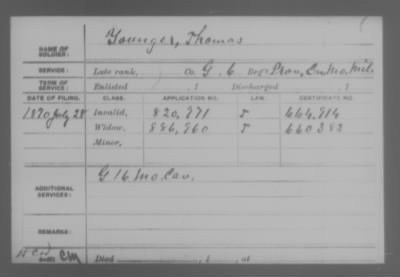 NAME OF SOLDIER: Younger, Thomas
SERVICE: Late rank, Co. G. 6 Reg't Prov. En. Mo. Mil.
TERM OF SERVICE: Enlisted , 1 Discharged , 1
DATE OF FILING. CLASS. APPLICATION NO. LAW. CERTIFICATE NO.
1890 July 28 Invalid, 820,871 664,814
Widow, 886,860 660383
Minor,
ADDITIONAL SERVICES: G 16 Mo. Cav.
REMARKS:
Died , 1 , at